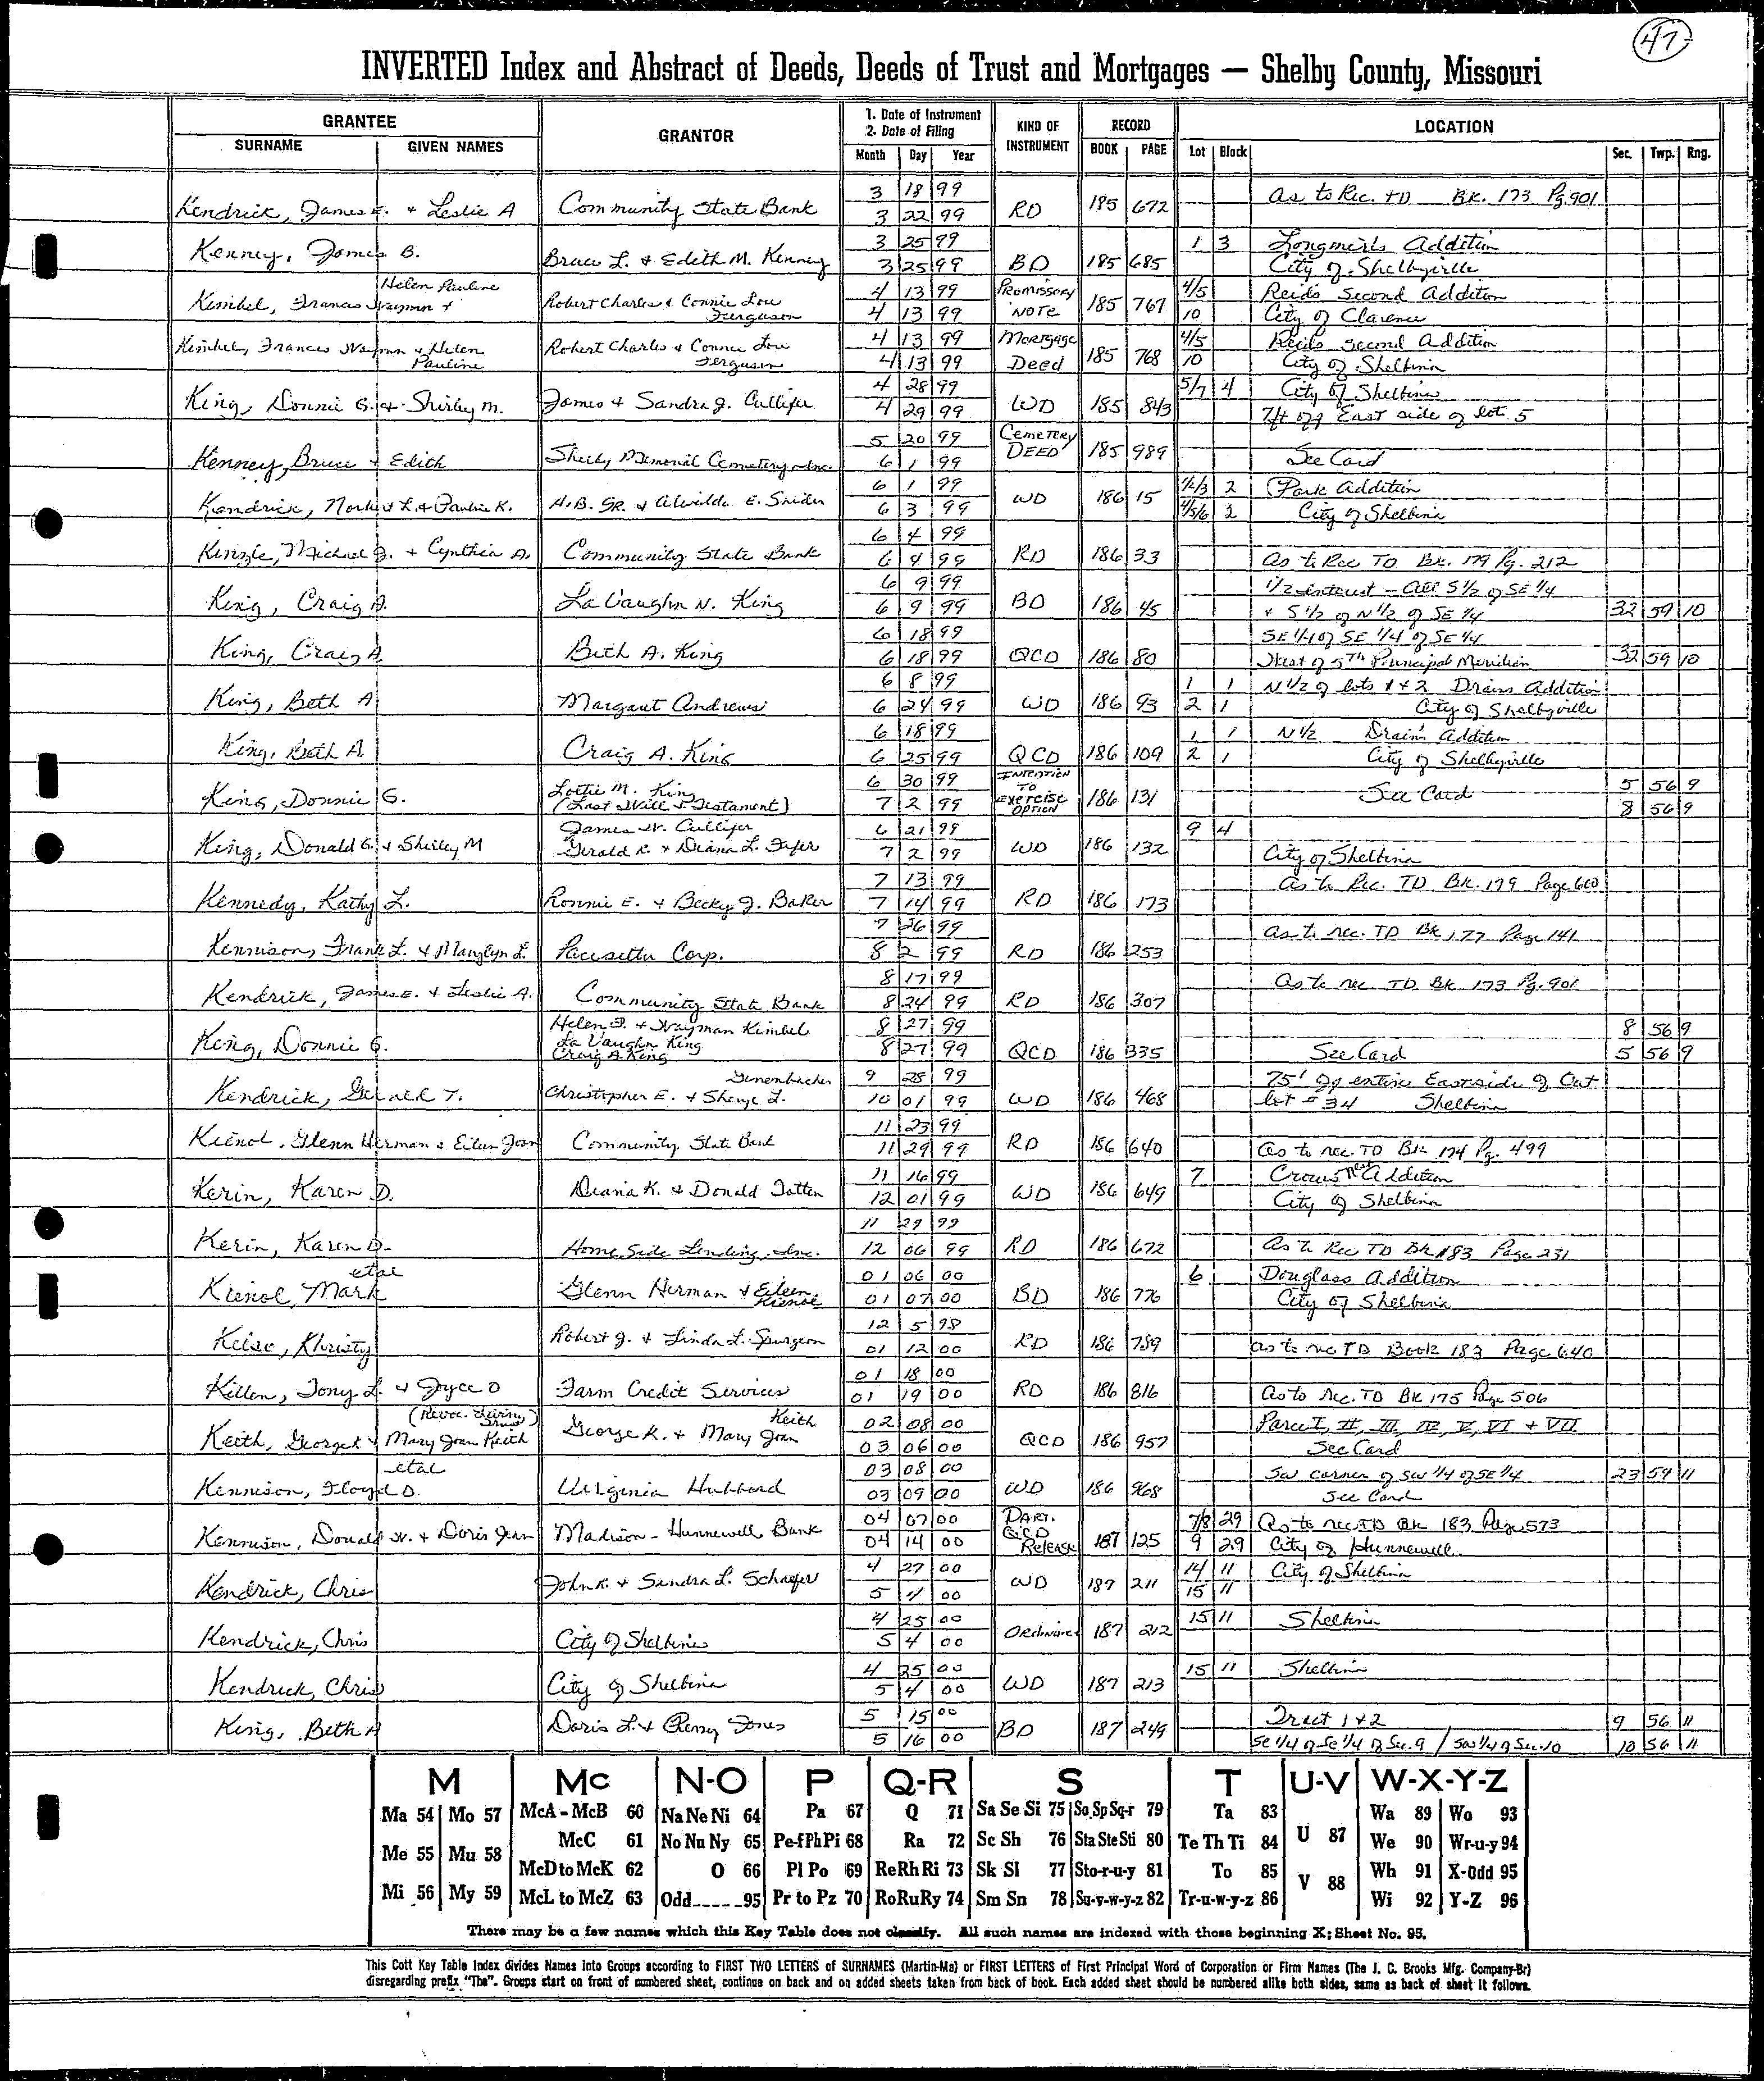 47
INVERTED Index and Abstract of Deeds, Deeds of Trust and Mortgages — Shelby County, Missouri
GRANTEE
SURNAME GIVEN NAMES
GRANTOR
1. Date of Instrument
2. Date of Filing
Month Day Year
KIND OF INSTRUMENT
RECORD
BOOK PAGE
LOCATION
Lot Block Sec. Twp. Rng.
Kendrick, James E. + Leslie A Community State Bank 3 18 99 3 22 99 RD 185 672 As to Rec. TD BK. 173 Pg. 901
Kenney, James B. Bruce L. + Edith M. Kenney 3 25 99 3 25 99 BD 185 685 1 3 Addition City of Shelbyville
Kimbel, Frances Wayman + Helen Pauline Robert Charles + Connie Lou Ferguson 4 13 99 4 13 99 Promissory Note 185 767 4/5 10 Reid's Second Addition City of Clarence
Kimbel, Frances Wayman + Helen Pauline Robert Charles + Connie Lou Ferguson 4 13 99 4 13 99 Mortgage Deed 185 768 4/5 10 Reid's Second Addition City of Shelbina
King, Donnie G. + Shirley M. James + Sandra J. Culliper 4 28 99 4 29 99 WD 185 843 5/7 4 City of Shelbina 7ft off East side of lot 5
Kenney, Bruce + Edith Shelby Memorial Cemetery Inc. 5 20 99 6 1 99 Cemetery Deed 185 989 See Card
Kendrick, L. + Pauline K. H.B. SR. + Alwilda E. Snider 6 1 99 6 3 99 WD 186 15 1/2/3 2 4/5/6 2 Park Addition City of Shelbina
Kinzle, Michael J. + Cynthia A. Community State Bank 6 4 99 6 4 99 RD 186 33 As to Rec TD Bk. 179 Pg. 212
King, Craig A. LaVaughn N. King 6 9 99 6 9 99 BD 186 45 1/2 interest - All S 1/2 of SE 1/4 + S 1/2 of N 1/2 of SE 1/4 32 59 10
King, Craig A. Beth A. King 6 18 99 6 18 99 QCD 186 80 SE 1/4 of SE 1/4 of SE 1/4 West of 5th Principal Meridian 32 59 10
King, Beth A Margaret Andrews 6 8 99 6 24 99 WD 186 93 1 1 2 1 N 1/2 of lots 1 + 2 Drains Addition City of Shelbyville
King, Beth A. Craig A. King 6 18 99 6 25 99 QCD 186 109 1 1 2 1 N 1/2 Drain's Addition City of Shelbyville
King, Donnie G. Lottie M. King (Last Will + Testament) 6 30 99 7 2 99 Intention to Exercise Option 186 131 See Card 5 56 9 8 56 9
King, Donald G. + Shirley M James W. Culliper Gerald R. + Diana L. 6 21 99 7 2 99 WD 186 132 9 4 City of Shelbina
Kennedy, Kathy L. Ronnie E. + Becky J. Baker 7 13 99 7 14 99 RD 186 173 As to Rec. TD Bk. 179 Page 600
Kennison, Frank L. + Marylyn L. Pacesetter Corp. 7 26 99 8 2 99 RD 186 253 As to rec. TD Bk 177 Page 141
Kendrick, James E. + Leslie A. Community State Bank 8 17 99 8 24 99 RD 186 307 As to rec. TD Bk 173 Pg. 901
King, Donnie G. Helen P. + Wayman Kimbel La Vaughn King Craig A. King 8 27 99 8 27 99 QCD 186 335 See Card 8 56 9 5 56 9
Kendrick, T. Christopher E. + Sheryl L. 9 28 99 10 01 99 WD 186 468 75' of entire East side of Out lot #34 Shelbina
Kienol, Glenn Herman + Eileen Joan Community State Bank 11 23 99 11 29 99 RD 186 640 As to rec. TD Bk 174 Pg. 499
Kerin, Karen D. Diana K. + Donald Totten 11 16 99 12 01 99 WD 186 649 7 Crows Nest Addition City of Shelbina
Kerin, Karen D. Home Side Lending, Inc. 11 29 99 12 06 99 RD 186 672 As to Rec TD Bk 183 Page 231
Kienol, Mark etal Glenn Herman + Eileen Kienol 01 06 00 01 07 00 BD 186 776 6 Douglass Addition City of Shelbina
Kelso, Khristy Robert J. + Linda L. Spurgeon 12 5 98 01 12 00 RD 186 789 As to rec TD Book 183 Page 640
Killen, Tony L. + Joyce D Farm Credit Services 01 18 00 01 19 00 RD 186 816 As to rec. TD Bk 175 Page 506
Keith, George K + Mary Joan Keith (Revoc. Living Trust) George K. + Mary Joan Keith 02 08 00 03 06 00 QCD 186 957 Parcel I, II, III, IV, V, VI + VII See Card
Kennison, Floyd D. etal Virginia Hubbard 03 08 00 03 09 00 WD 186 968 SW corner of SW 1/4 of SE 1/4 See Card 23 59 11
Kennison, Donald W. + Doris Jean Madison-Hunnewell Bank 04 07 00 04 14 00 Part. Release 187 125 7/8 29 9 29 As to rec TD Bk 183 Page 573 City of Hunnewell
Kendrick, Chris John R. + Sandra L. Schaefer 4 27 00 5 4 00 WD 187 211 14 11 15 11 City of Shelbina
Kendrick, Chris City of Shelbina 4 25 00 5 4 00 Ordinance 187 212 15 11 Shelbina
Kendrick, Chris City of Shelbina 4 25 00 5 4 00 WD 187 213 15 11 Shelbina
King, Beth A Doris L. + Perry Jones 5 15 00 5 16 00 BD 187 249 Tract 1 + 2 SE 1/4 of SE 1/4 of Sec. 9 / SW 1/4 of Sec. 10 9 56 11 10 56 11
M Mc N-O P Q-R S T U-V W-X-Y-Z
Ma 54 Mo 57 McA-McB 60 Na Ne Ni 64 Pa 67 Q 71 Sa Se Si 75 So Sp Sq-r 79 Ta 83 Wa 89 Wo 93
Me 55 Mu 58 McC 61 No Nu Ny 65 Pe-f Ph Pi 68 Ra 72 Sc Sh 76 Sta Ste Sti 80 Te Th Ti 84 U 87 We 90 Wr-u-y 94
McD to McK 62 O 66 Pl Po 69 Re Rh Ri 73 Sk Sl 77 Sto-r-u-y 81 To 85 V 88 Wh 91 X-Odd 95
Mi 56 My 59 McL to McZ 63 Odd-----95 Pr to Pz 70 Ro Ru Ry 74 Sm Sn 78 Su-v-w-y-z 82 Tr-u-w-y-z 86 Wi 92 Y-Z 96
There may be a few names which this Key Table does not classify. All such names are indexed with those beginning X; Sheet No. 95.
This Cott Key Table Index divides Names into Groups according to FIRST TWO LETTERS of SURNAMES (Martin-Ma) or FIRST LETTERS of First Principal Word of Corporation or Firm Names (The J. C. Brooks Mfg. Company-Br)
disregarding prefix "The". Groups start on front of numbered sheet, continue on back and on added sheets taken from back of book. Each added sheet should be numbered alike both sides, same as back of sheet it follows.